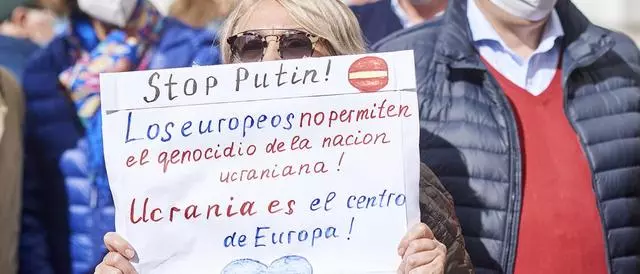 Stop Putin!
Los europeos no permiten
el genocidio de la nacion
ucraniana!
Ucrania es el centro
de Europa!